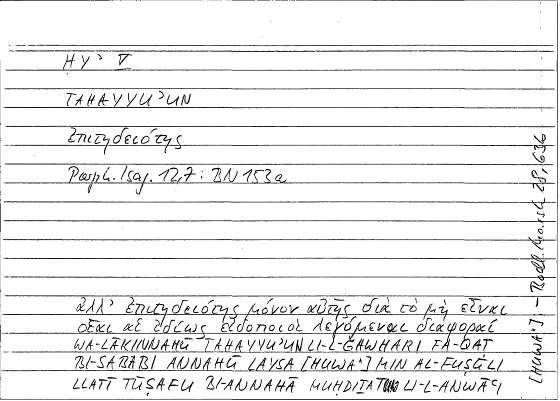 HYʾ V
TAHAYYUʾUN
ἐπιτηδειότης
Porph. Isag. 12,7 : BN 153a
ἀλλ' ἐπιτηδειότης μόνον αὐτῆς διὰ τὸ μὴ εἶναι
αἱ ἰδίως εἰδοποιοὶ λεγόμεναι διαφοραί
WA-LĀKINNAHŪ TAHAYYUʾUN LI-L-ǦAWHARI FA-QAṬ
BI-SABABI ANNAHŪ LAYSA [HUWAᵃ] MIN AL-FUṢŪLI
LLATĪ TŪṢAFU BI-ANNAHĀ MUḤDIṮATUN LI-L-ANWĀʿI
[HUWAᵃ]: – Bodl. Marsh 28,636